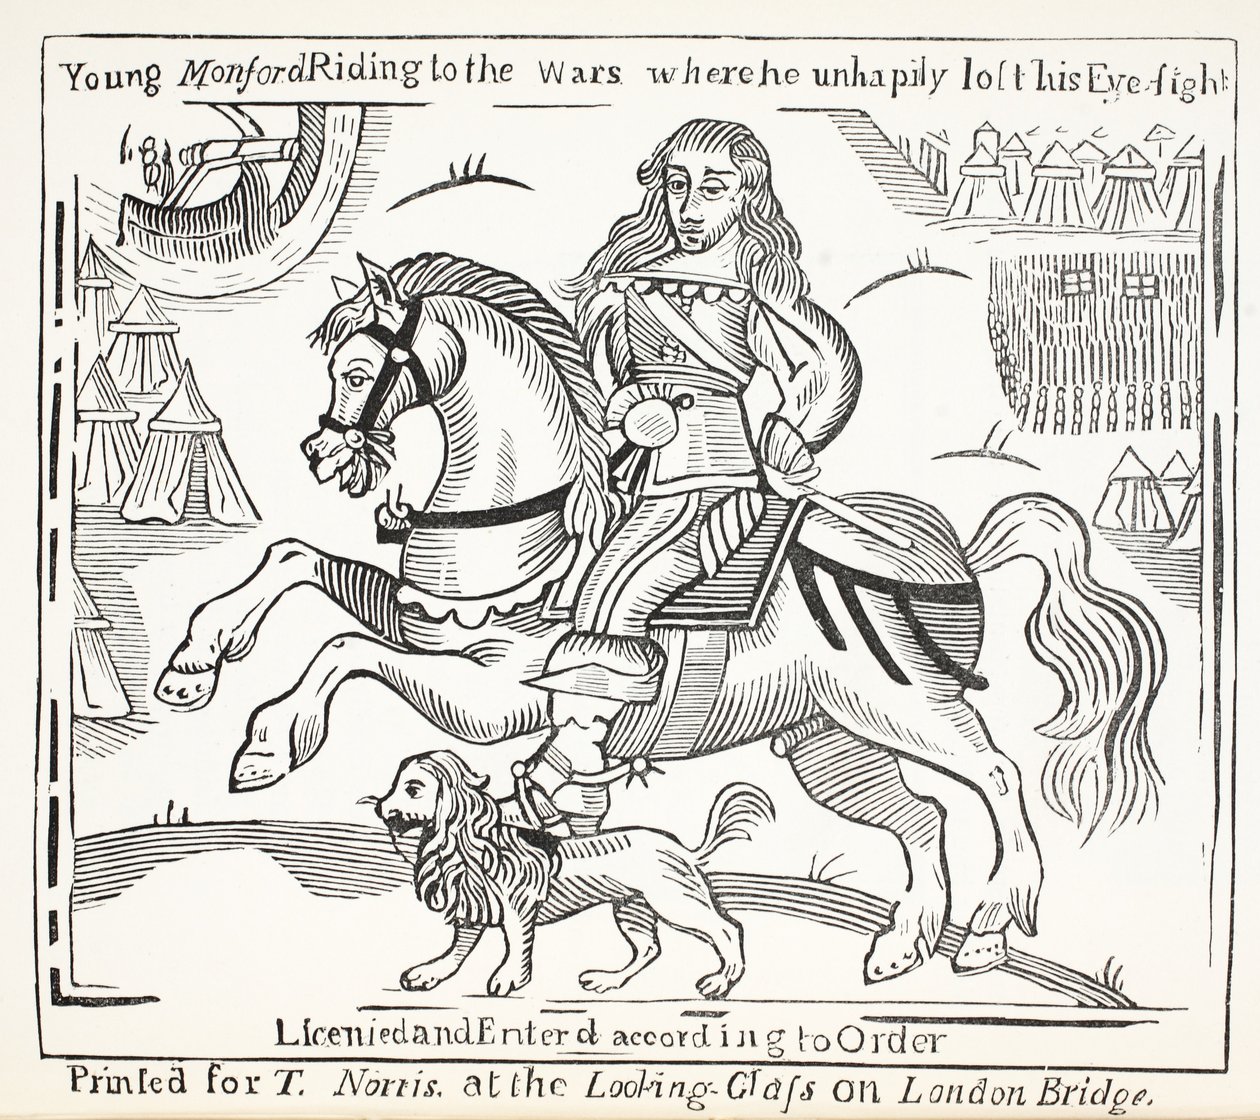 Young Monford Riding to the Wars where he unhapily loſt his Eye-ſight
Licenſed and Enterd according to Order
Printed for T. Norris. at the Looking-Glaſs on London Bridge.